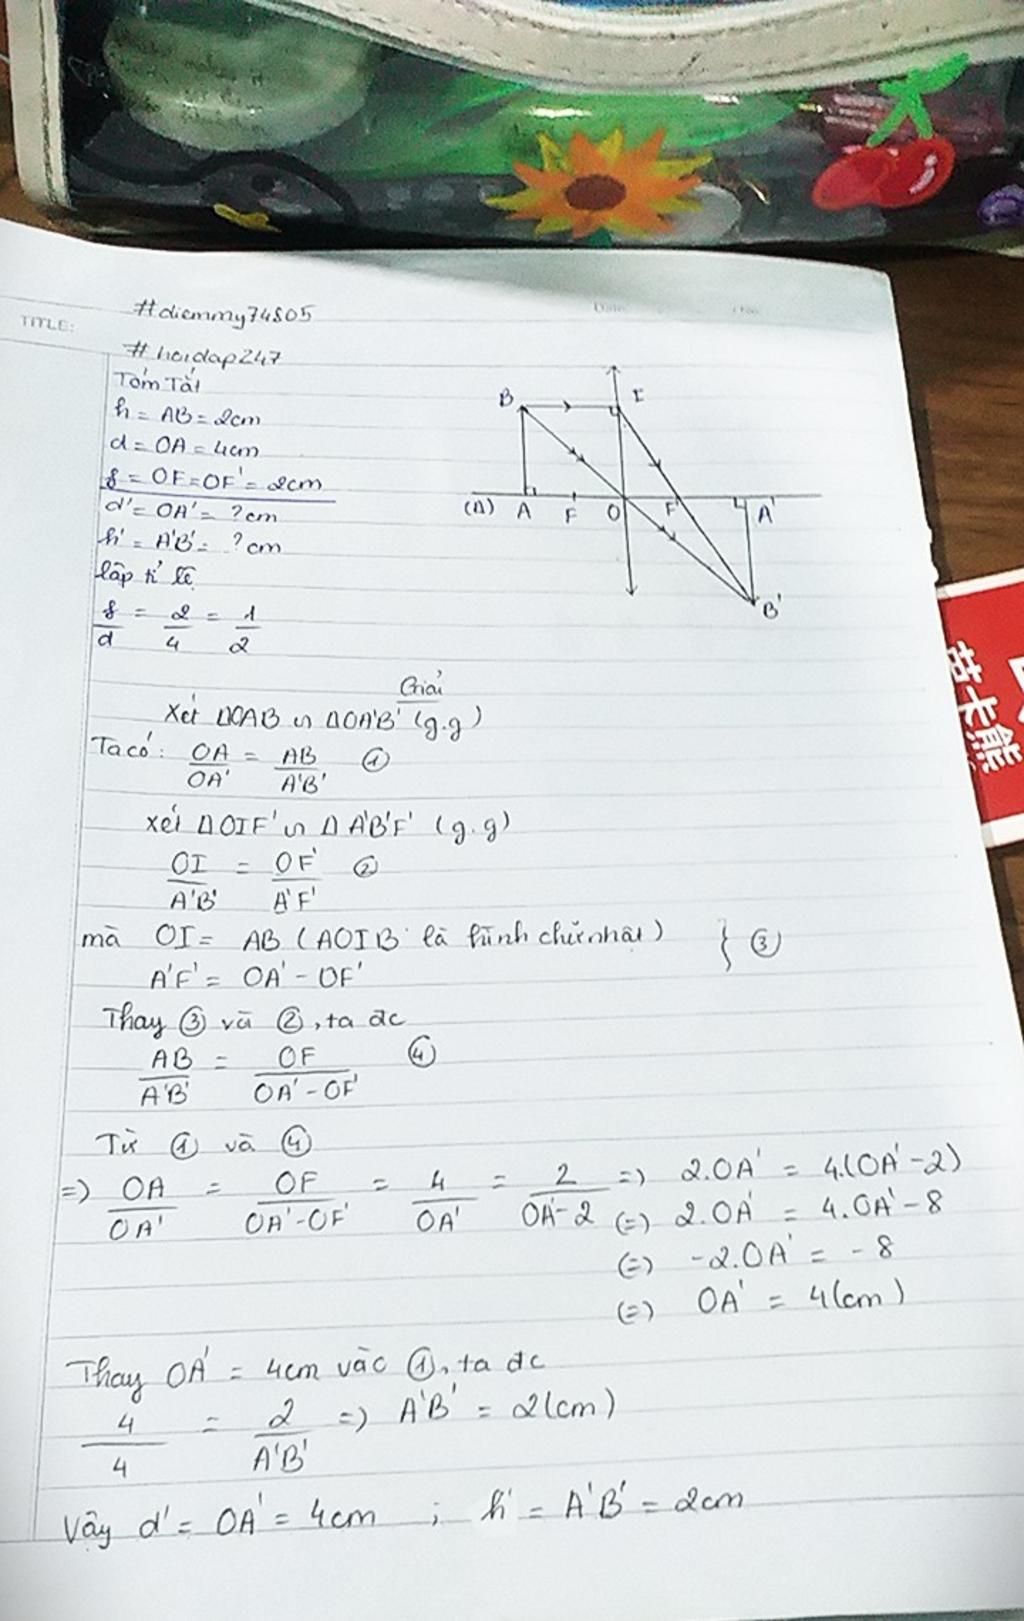 #diemmy74805
TITLE:
#hoidap247
Tóm Tắt
h = AB = 2cm
d = OA = 4cm
f = OF = OF' = 2cm
d' = OA' = ?cm
h' = A'B' = ?cm
lập tỉ lệ
f/d = 2/4 = 1/2
B I
(Δ) A F O F' A'
B'
Giải
Xét ΔOAB ∽ ΔOA'B' (g.g)
Ta có: OA/OA' = AB/A'B' ①
Xét ΔOIF' ∽ ΔA'B'F' (g.g)
OI/A'B' = OF'/A'F' ②
mà OI = AB (AOIB là hình chữ nhật) } ③
A'F' = OA' - OF'
Thay ③ và ②, ta đc
AB/A'B' = OF/OA' - OF' ④
Từ ① và ④
=> OA/OA' = OF/OA' - OF' = 4/OA' = 2/OA' - 2 => 2.OA' = 4.(OA' - 2)
(=) 2.OA' = 4.OA' - 8
(=) -2.OA' = -8
(=) OA' = 4(cm)
Thay OA' = 4cm vào ①, ta đc
4/4 = 2/A'B' => A'B' = 2(cm)
Vậy d' = OA' = 4cm ; h' = A'B' = 2cm
苦卡熊